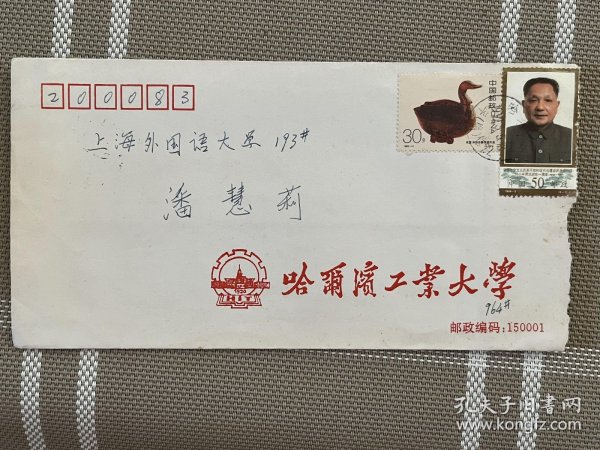 200083
中国邮政
30分
50
上海外国语大学 193#
潘慧莉
1920
HIT
哈爾濱工業大學
964#
邮政编码:150001
孔夫子旧书网
www.kongfz.com